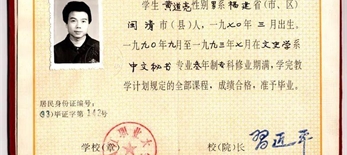 学生 黄道亮 性别 男 系 福建 省(市、区)
闽清 市(县)人,一九七〇年 三 月出生。
一九九〇年九月至一九九三年七月在 文史学 系
中文秘书 专业 叁 年制 专 科修业期满,学完教
学计划规定的全部课程,成绩合格,准予毕业。
居民身份证编号:
(93)毕证字第 142号
学校(章)
校(院)长 习近平